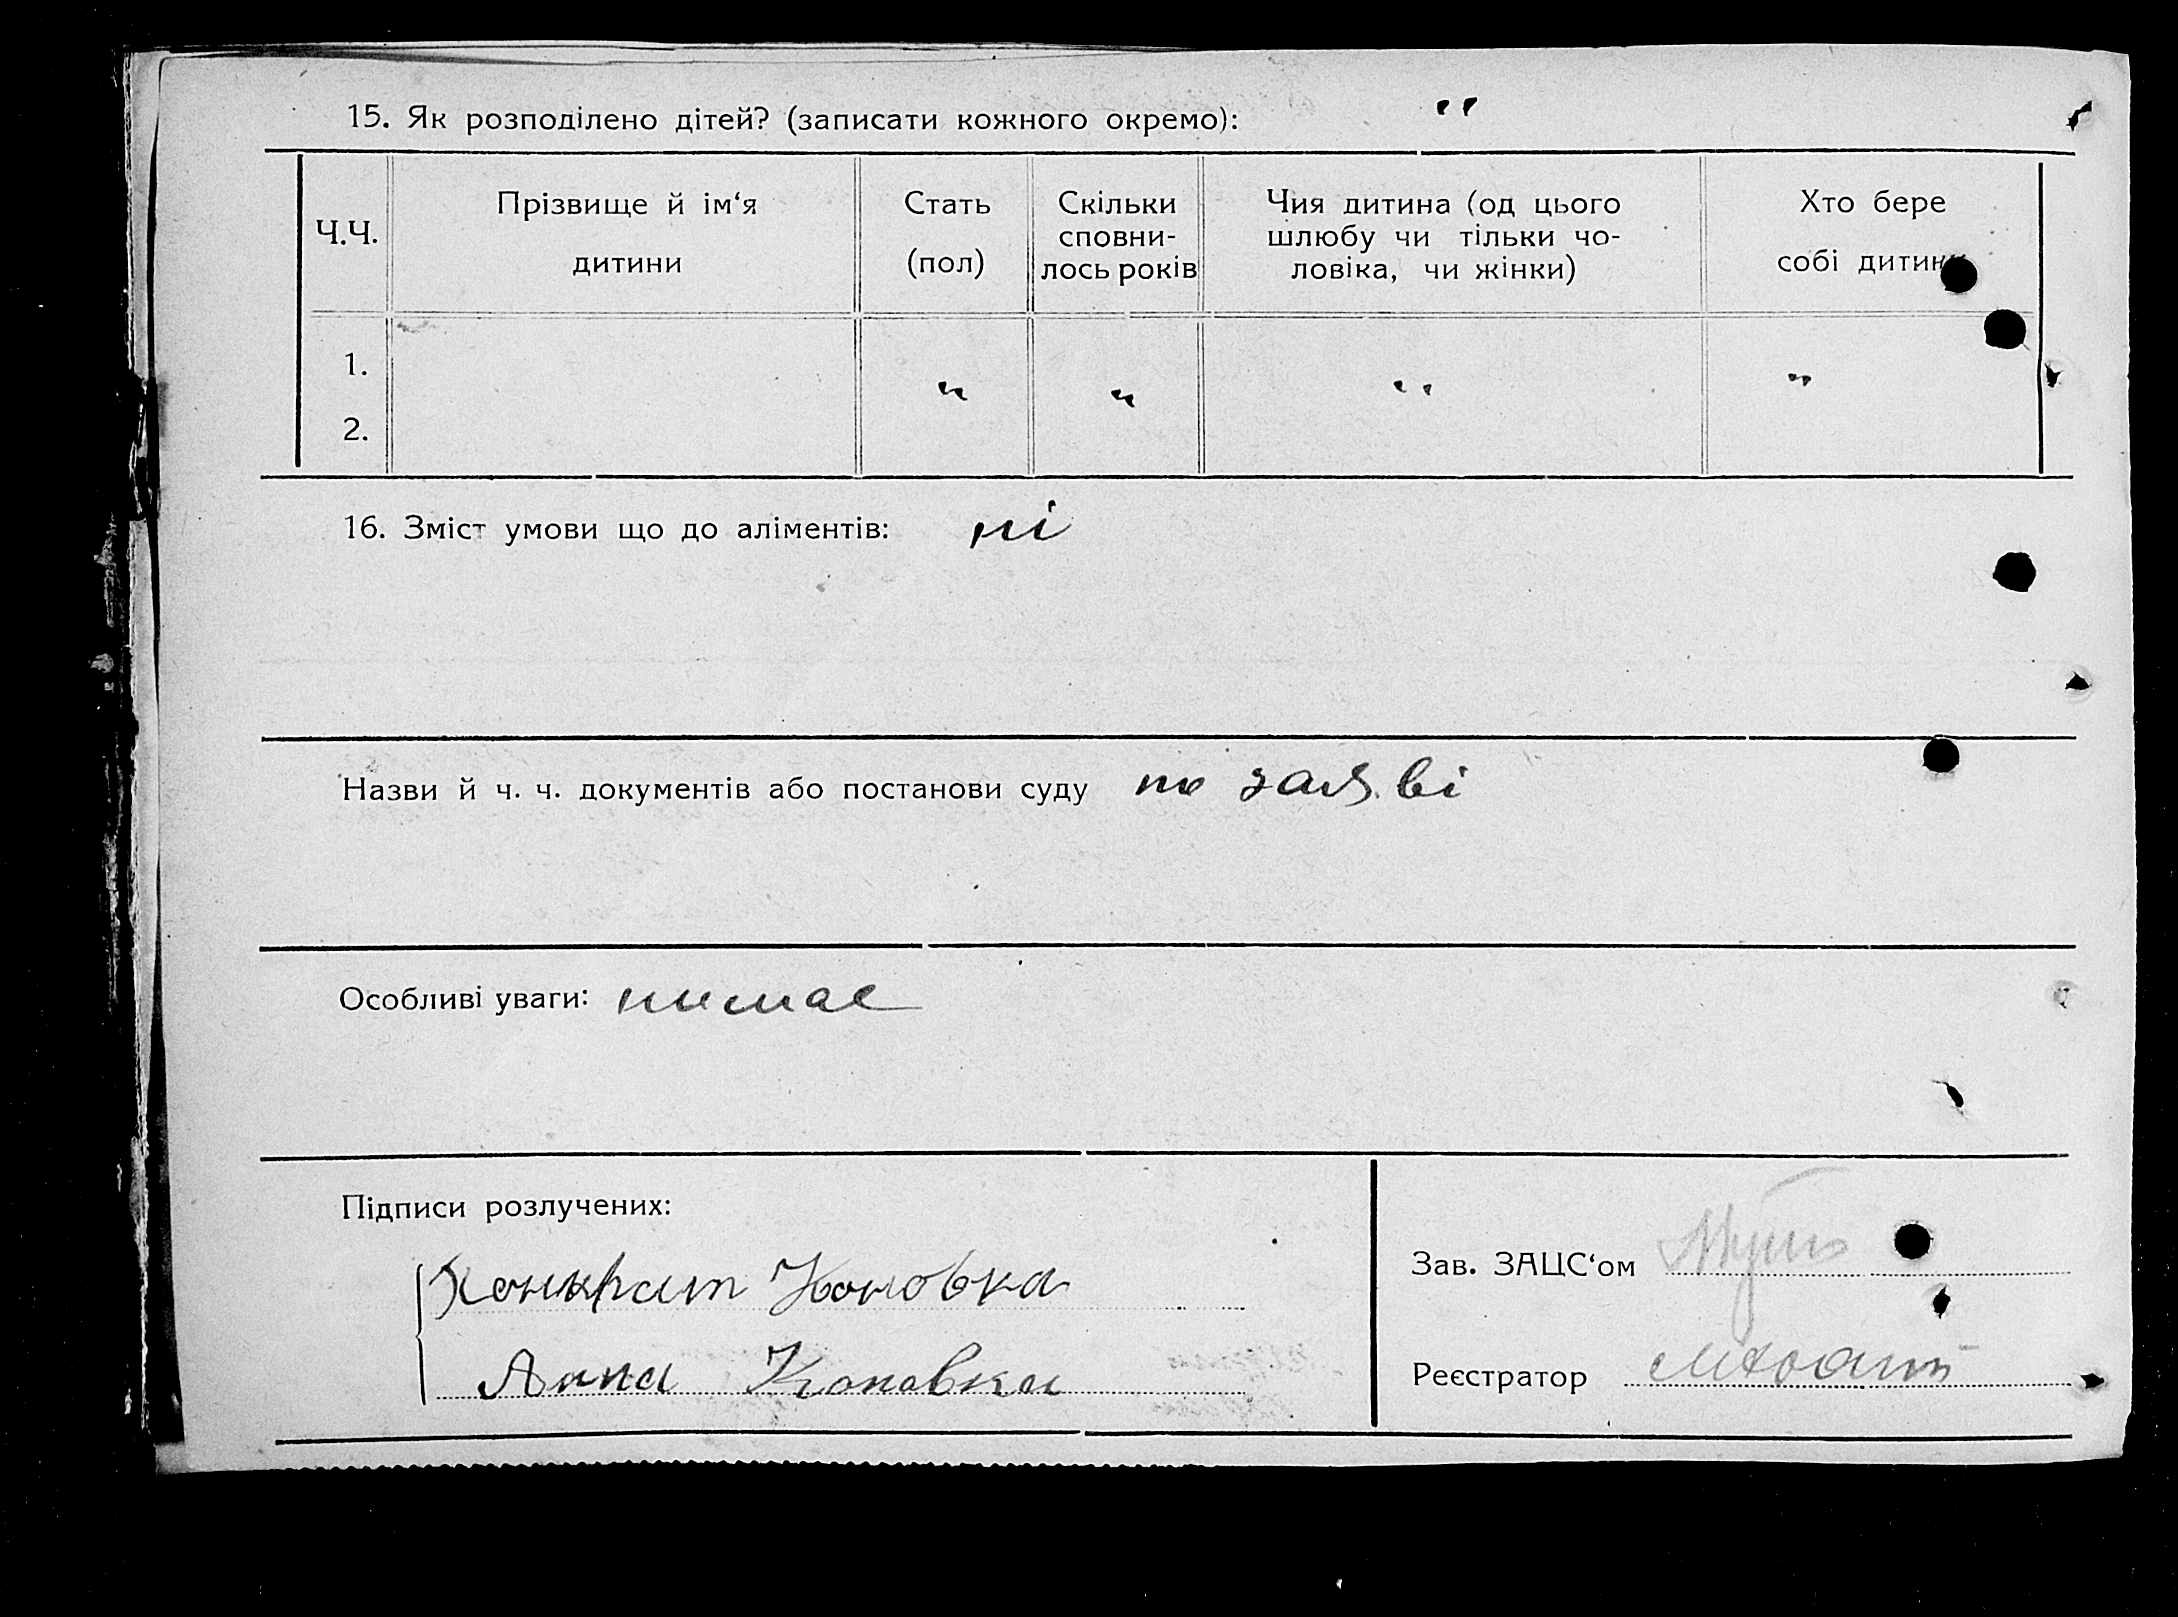 15. Як розподілено дітей? (записати кожного окремо): "
Ч.Ч.
Прізвище й ім‘я
дитини
Стать
(пол)
Скільки
сповни-
лось років
Чия дитина (од цього
шлюбу чи тільки чо-
ловіка, чи жінки)
Хто бере
собі дитину
1.
" " " "
2.
16. Зміст умови що до аліментів: ні
Назви й ч. ч. документів або постанови суду по заяві
Особливі уваги: нимае
Підписи розлучених:
Конкрат Коновка
Анна Коновка
Зав. ЗАЦС‘ом
Реєстратор